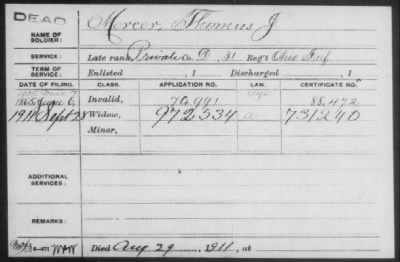 DEAD
NAME OF SOLDIER: Mercer, Thomas J
SERVICE: Late rank, Private Co. D, 31 Reg't Ohio Inf
TERM OF SERVICE: Enlisted , 1 Discharged , 1
DATE OF FILING. CLASS. APPLICATION NO. LAW. CERTIFICATE NO.
1865 June 6, Invalid, 70.991 88.472
1911 Sept 23 Widow, 972534 a 731240
Minor,
ADDITIONAL SERVICES:
REMARKS:
Died Aug 29, 1911, at